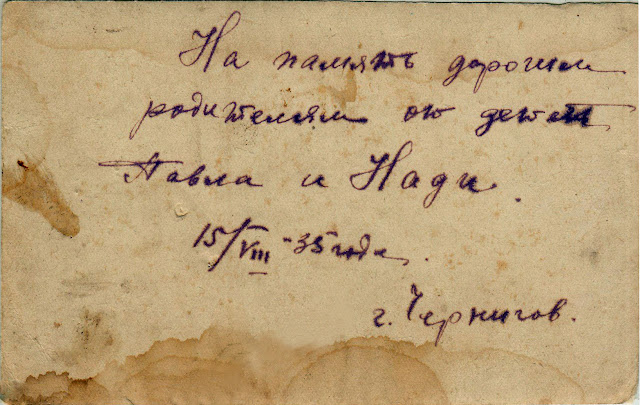 На память дорогим
родителям от детей
Павла и Нади.
15/VIII-35 года.
г. Чернигов.